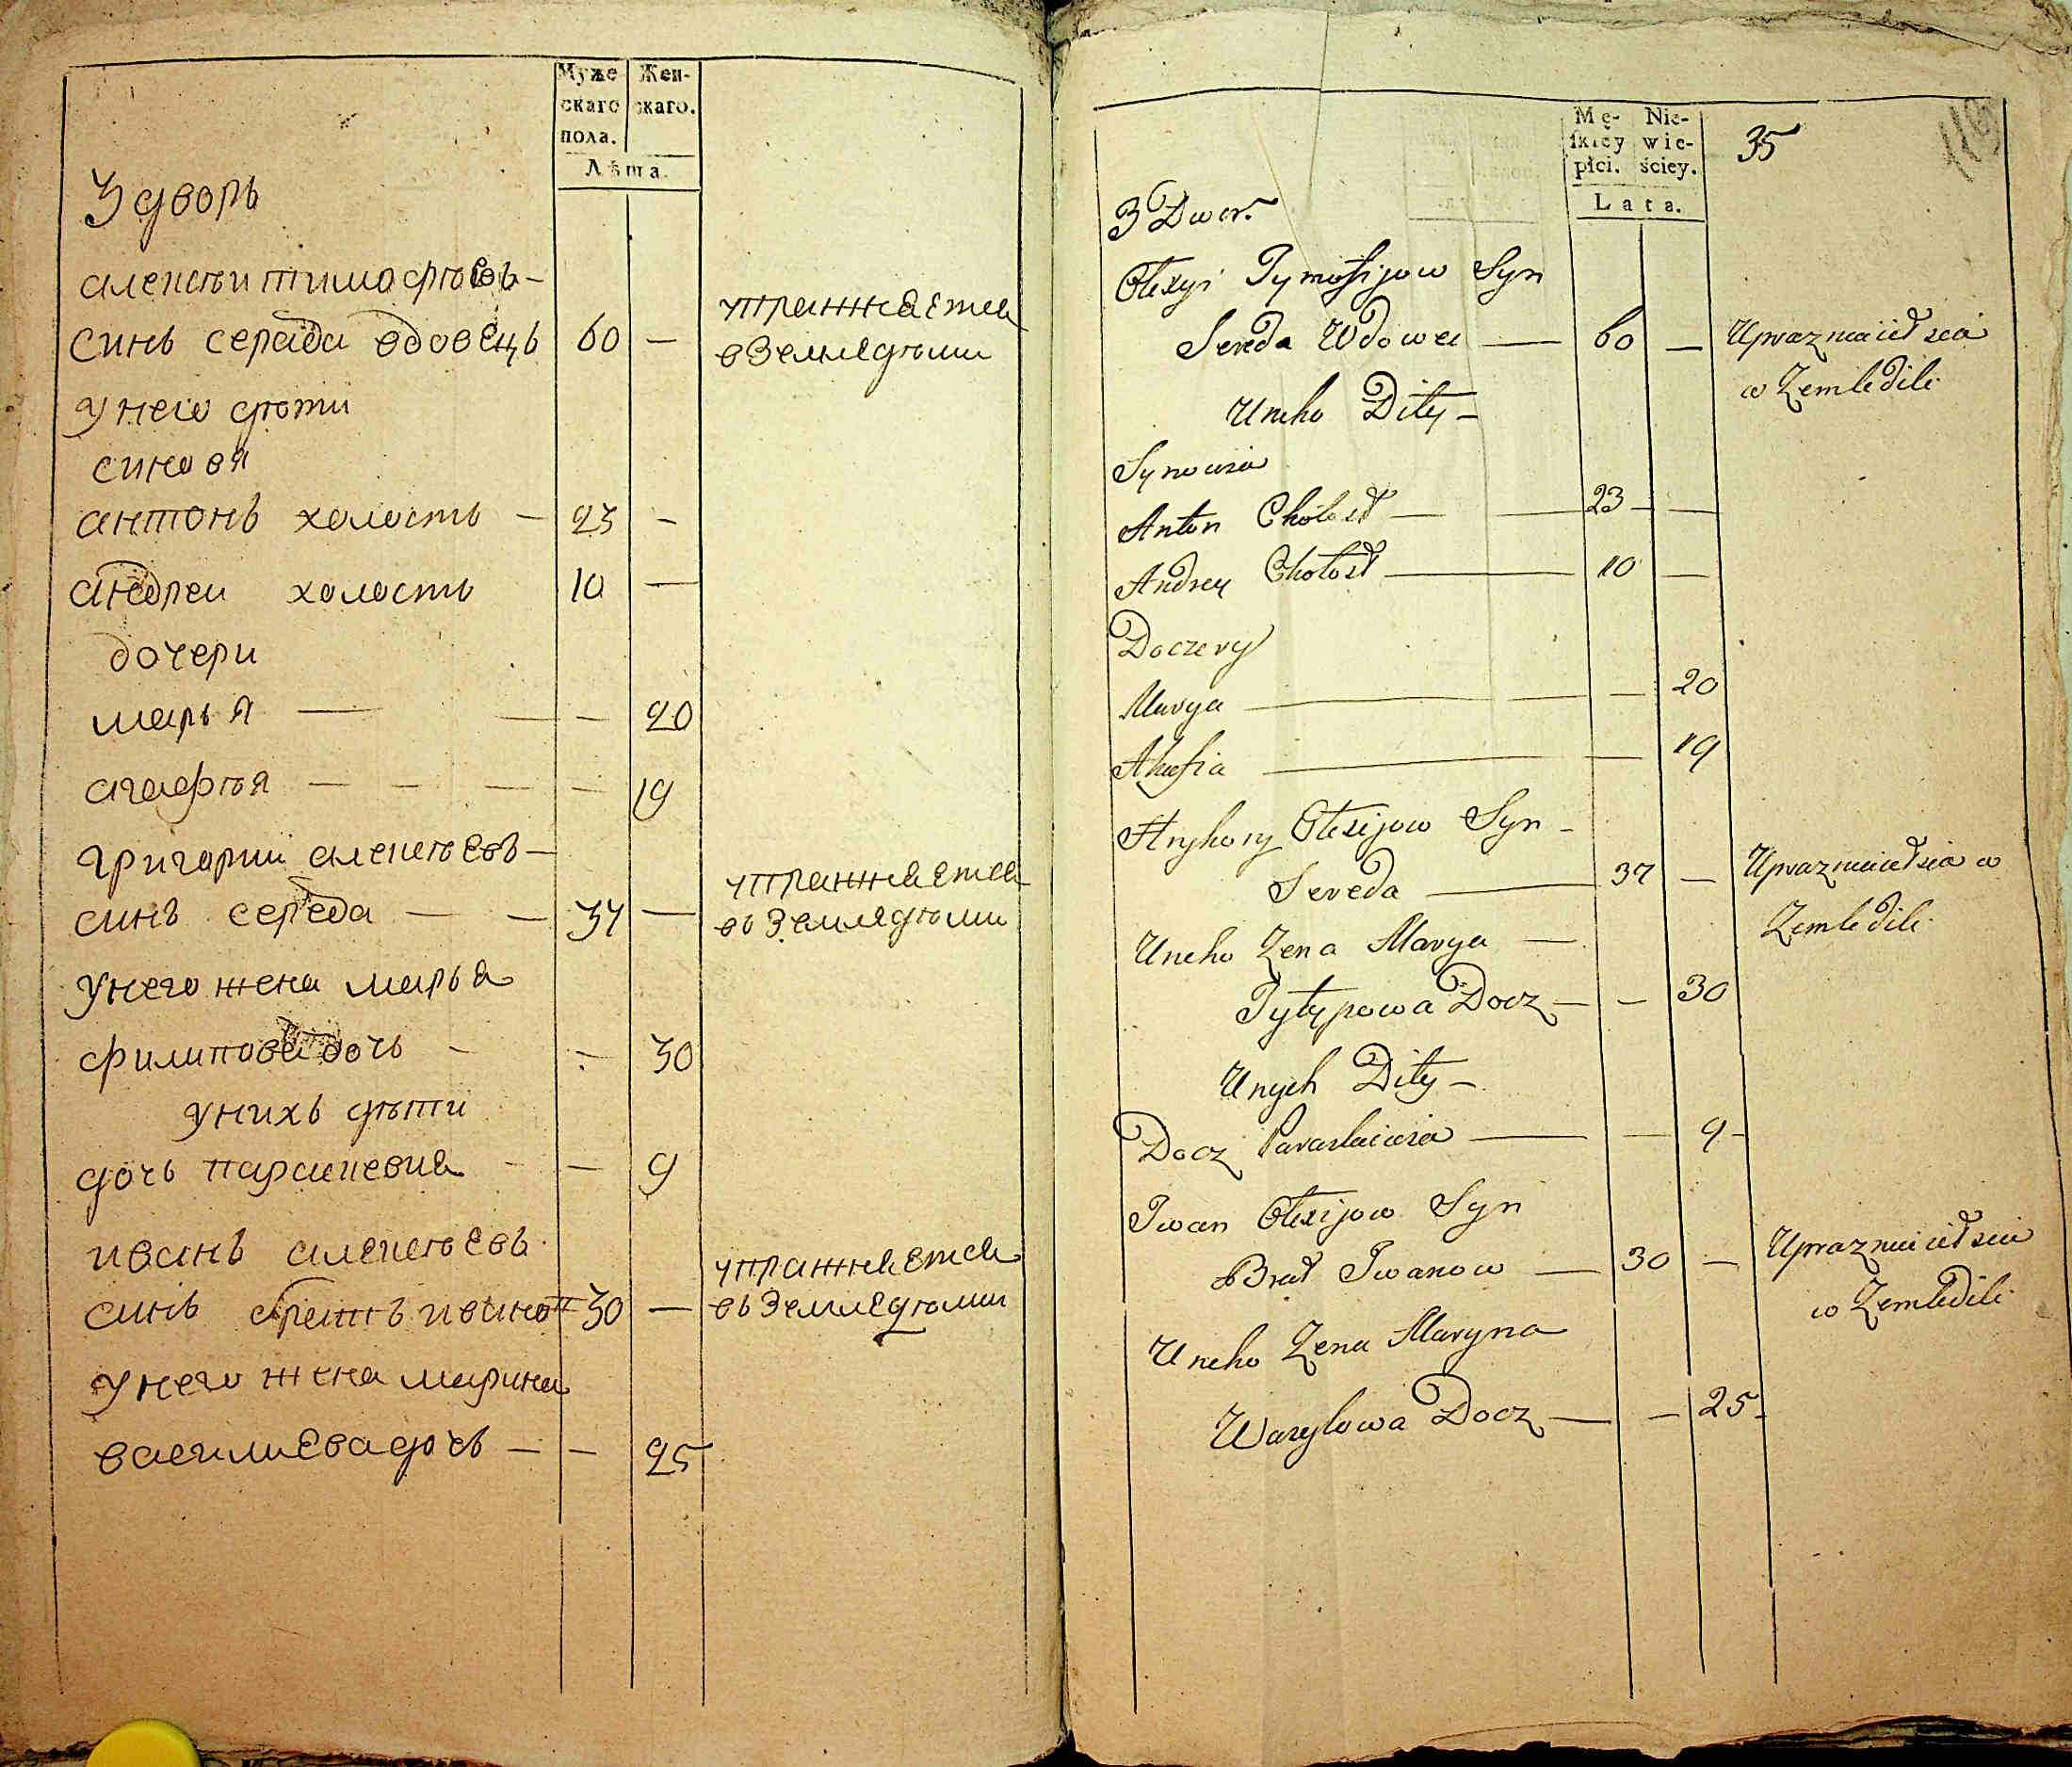 Муже Жен-
скаго скаго.
пола.
Лѣта.
3 дворъ
алексѣи тимофѣевъ —
синъ середа вдовецъ 60 —
упражнѣется
в Земледѣлии
У него дѣти
синовя
антонъ холостъ — 23 —
андреи холостъ 10 —
дочери
марья — — — 20
агафѣя — — — — 19
григории алексѣевъ —
синъ середа — — 37 —
упражняется
въ Земледѣлии
У него жена марья
филипова дочь — — 30
У нихъ дѣти
дочь парасковия — — 9
иванъ алексѣевъ
синъ братъ ивановъ 30 —
упражняется
въ Земледѣлии
У него жена марина
василиева дочь — — 25
Mę- Nie-
skiey wie-
płci. ściey.
Lata.
35
119
3 Dwor.
Olexyi Tymofijow Syn
Sereda Wdowec — 60 — Uprazniaiet sia
w Zemledili
Uneho Dity —
Synowia
Anton Chołost — — 23 — —
Andrey Chołost — 10 —
Doczery
Marya — — — 20
Ahafia — — 19
Hryhory Olexijow Syn —
Sereda — 37 — Uprazniaiet sia w
Zemledili
Uneho Zena Marya —
Pyłypowa Docz — — 30
Unych Dity —
Docz Paraskiewia — — 9 —
Iwan Olexijow Syn
Brat Iwanow — 30 — Uprazniaiet sia
w Zemledili
Uneho Zena Maryna
Wasylowa Docz — — 25 —